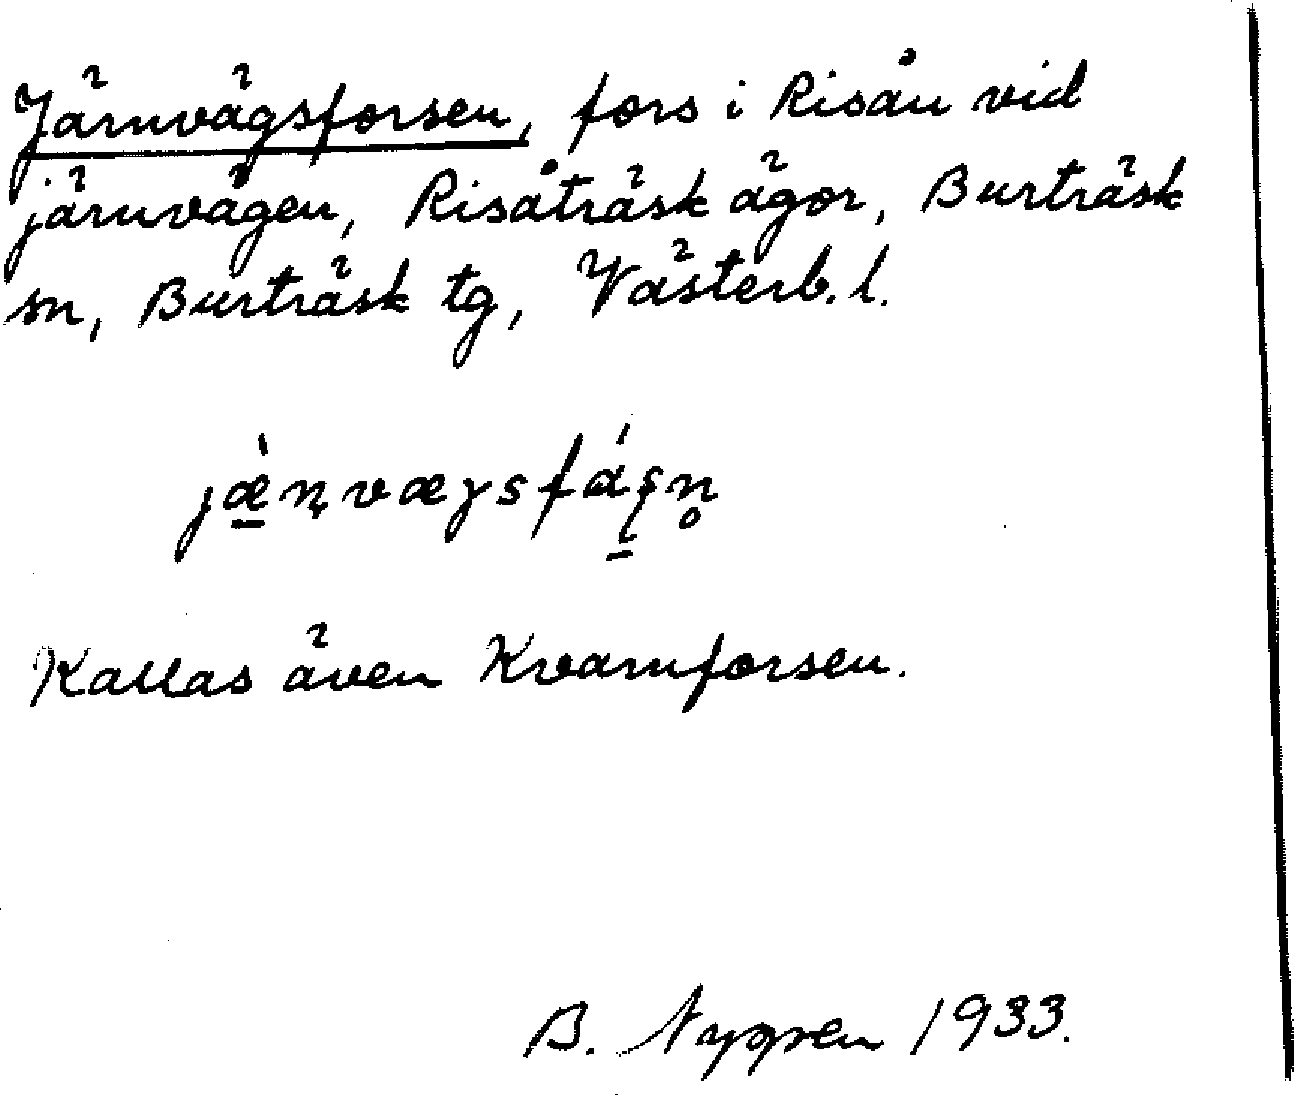 Järnvägsforsen, fors i Risån vid
järnvägen, Risåträsk ägor, Burträsk
sn, Burträsk tg, Västerb. l.
jæ̠̀ɳvæɣsfáʂ̠n̥
Kallas även Kvarnforsen.
B. Nygren 1933.